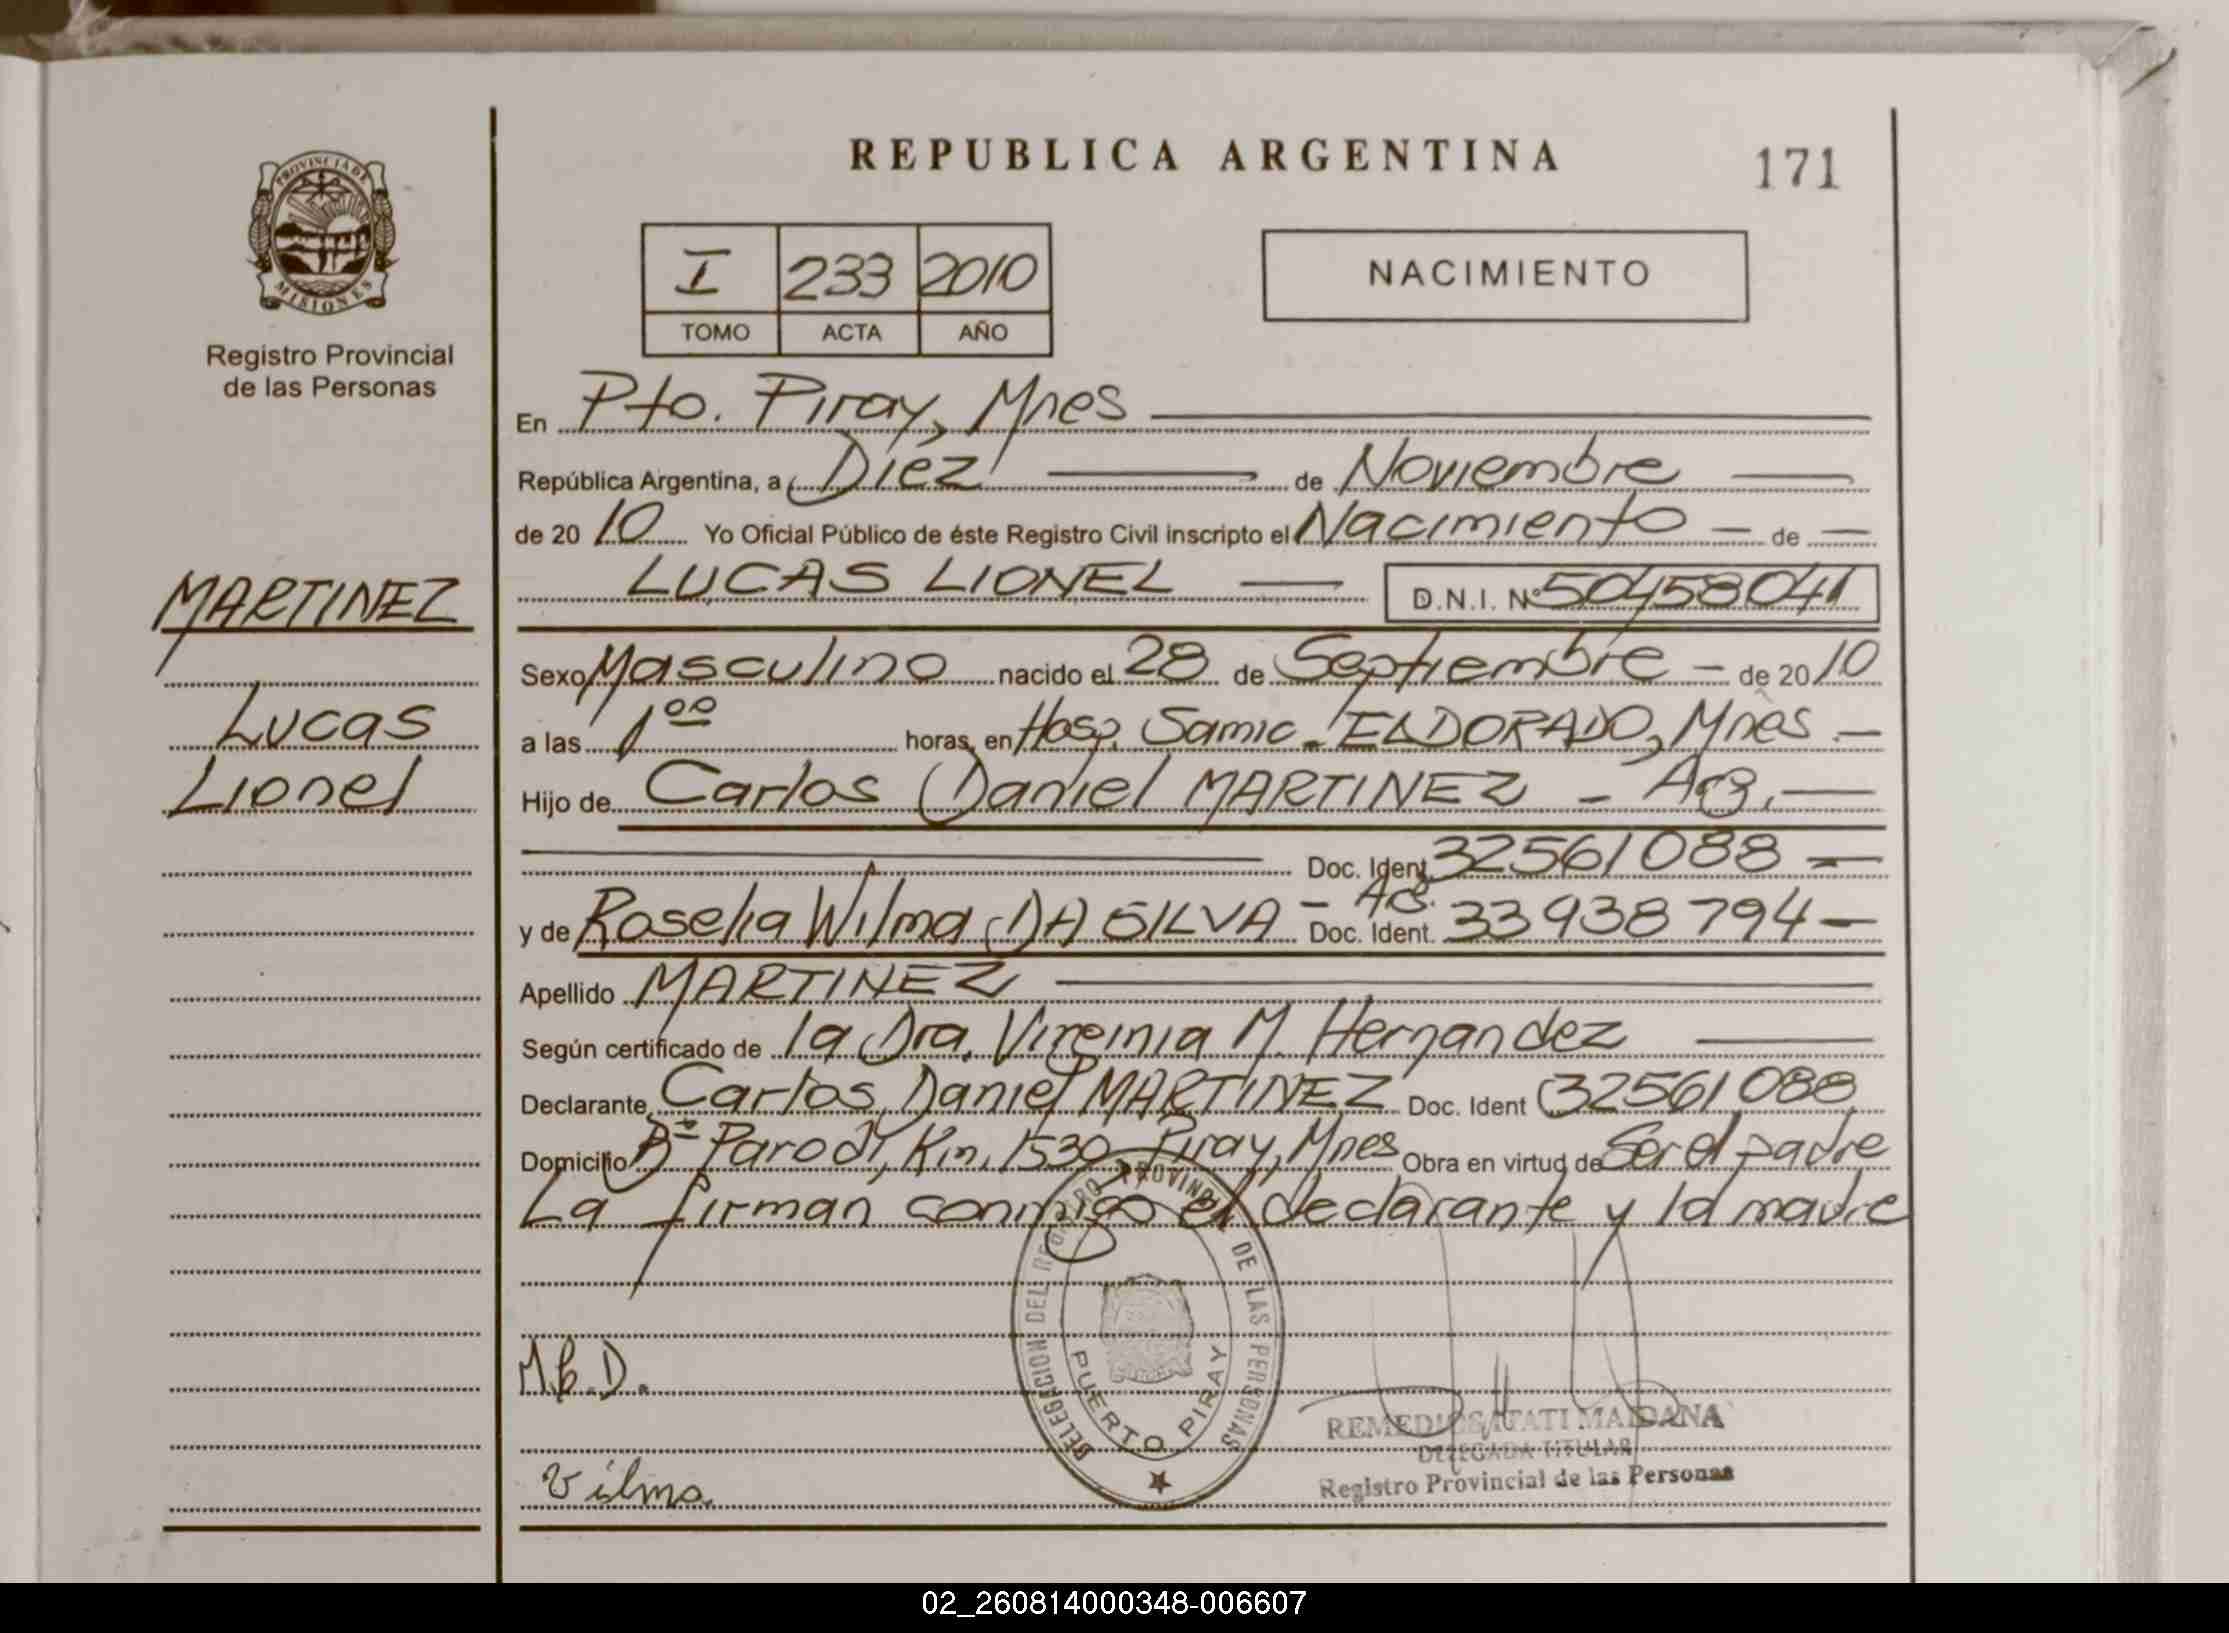 REPUBLICA ARGENTINA
171
PROVINCIA DE
MISIONES
Registro Provincial
de las Personas
I 233 2010
TOMO ACTA AÑO
NACIMIENTO
En Pto. Piray, Mnes
República Argentina, a Diez de Noviembre
de 20 10 Yo Oficial Público de éste Registro Civil inscripto el Nacimiento - de -
LUCAS LIONEL D.N.I. Nº 50458041
MARTINEZ
Lucas
Lionel
Sexo Masculino nacido el 28 de Septiembre - de 20 10
a las 1 00 horas, en Hosp. Samic - ELDORADO, Mnes -
Hijo de Carlos Daniel MARTINEZ - Arg.
Doc. Ident. 32561088 -
y de Roselia Wilma DA SILVA - Arg. Doc. Ident. 33938794 -
Apellido MARTINEZ
Según certificado de la Dra. Virginia M. Hernandez
Declarante Carlos Daniel MARTINEZ Doc. Ident 32561088
Domicilio Bº Parodi, Km. 1530 Piray, Mnes Obra en virtud de Ser el padre
La firman conmigo el declarante y la madre
DELEGACION DEL REGISTRO PROVINCIAL DE LAS PERSONAS
PUERTO PIRAY
REMEDIOS ITATI MAIDANA
DELEGADA TITULAR
Registro Provincial de las Personas
Vilma
02_260814000348-006607